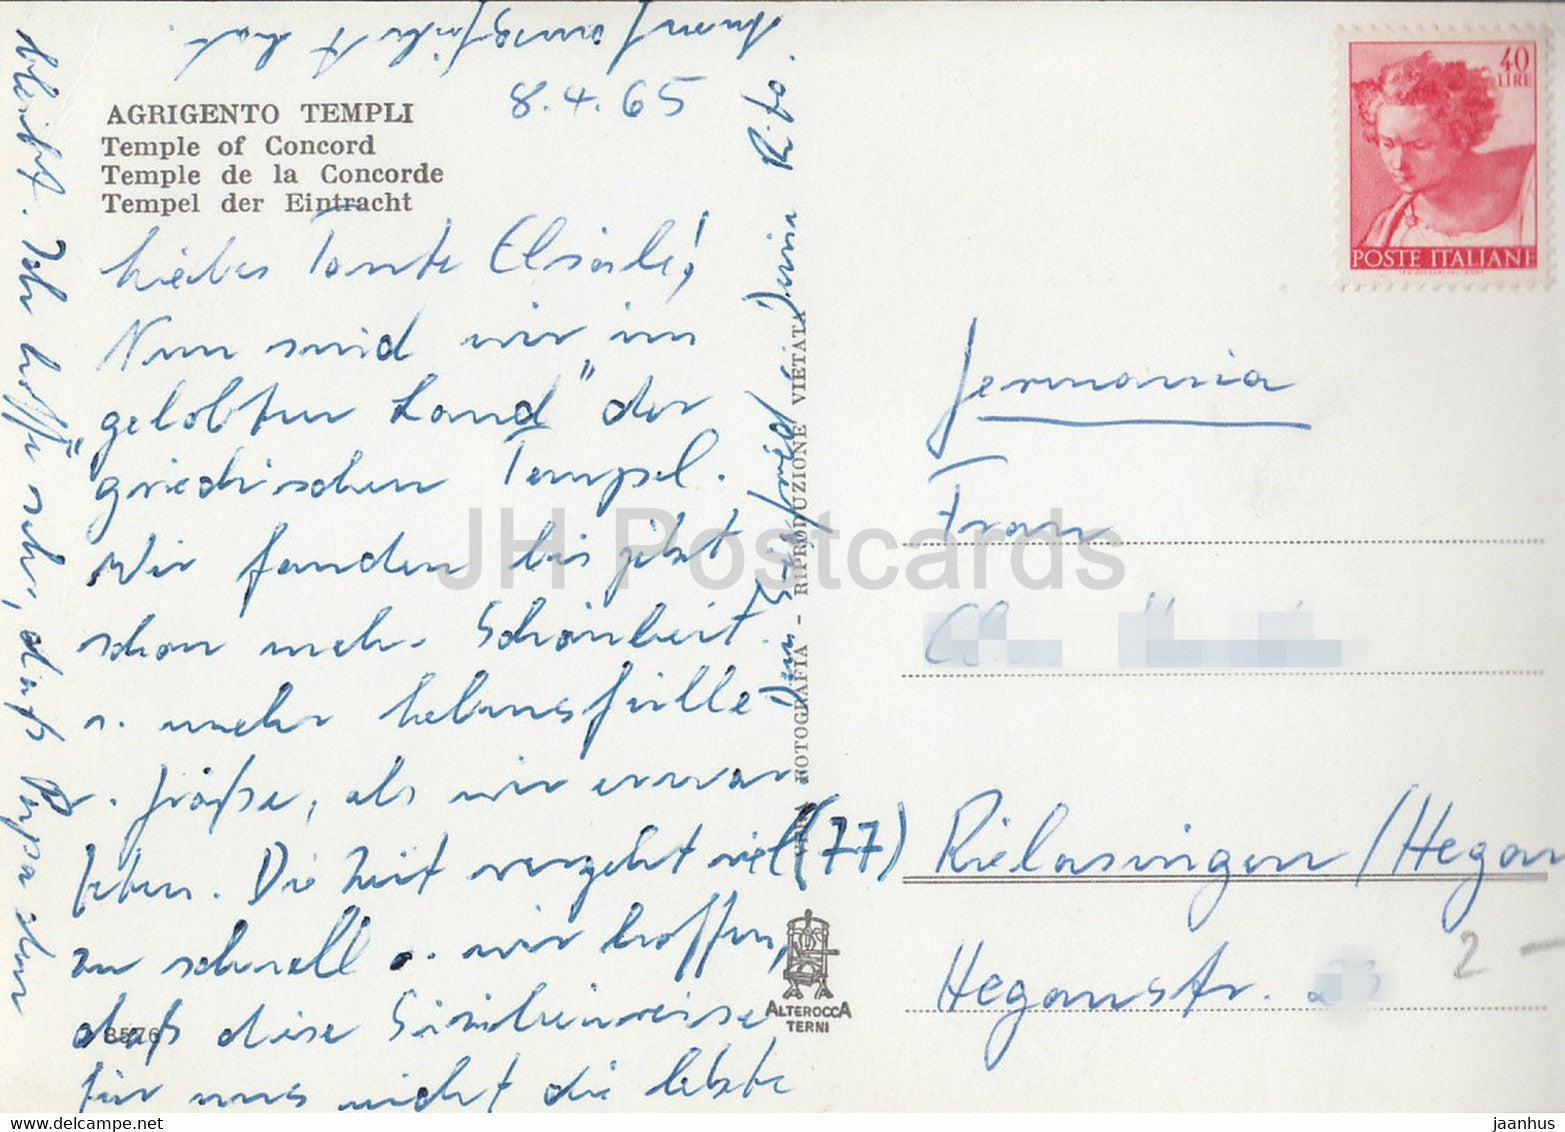 AGRIGENTO TEMPLI
Temple of Concord
Temple de la Concorde
Tempel der Eintracht
8.4.65
Liebes Tante
Nun sind wir im
"gelobten Land" der
griechischen Tempel.
Wir fanden bis jetzt
schon mehr Schönheit
u. mehr
u. Größe, als wir erwar
teten. Die Zeit vergeht viel
zu schnell u. wir hoffen,
daß diese Sizilienreise
für uns nicht die letzte
bleibt. Ich hoffe sehr, daß Papa
hat.
Rita.
VERA FOTOGRAFIA - RIPRODUZIONE VIETATA
ALTEROCCA
TERNI
8576
40
LIRE
POSTE ITALIANE
Germania
Frau
(77) Rielasingen/Hegau
Hegaustr.
2 -
JH Postcards
www.delcampe.net
jaanhus